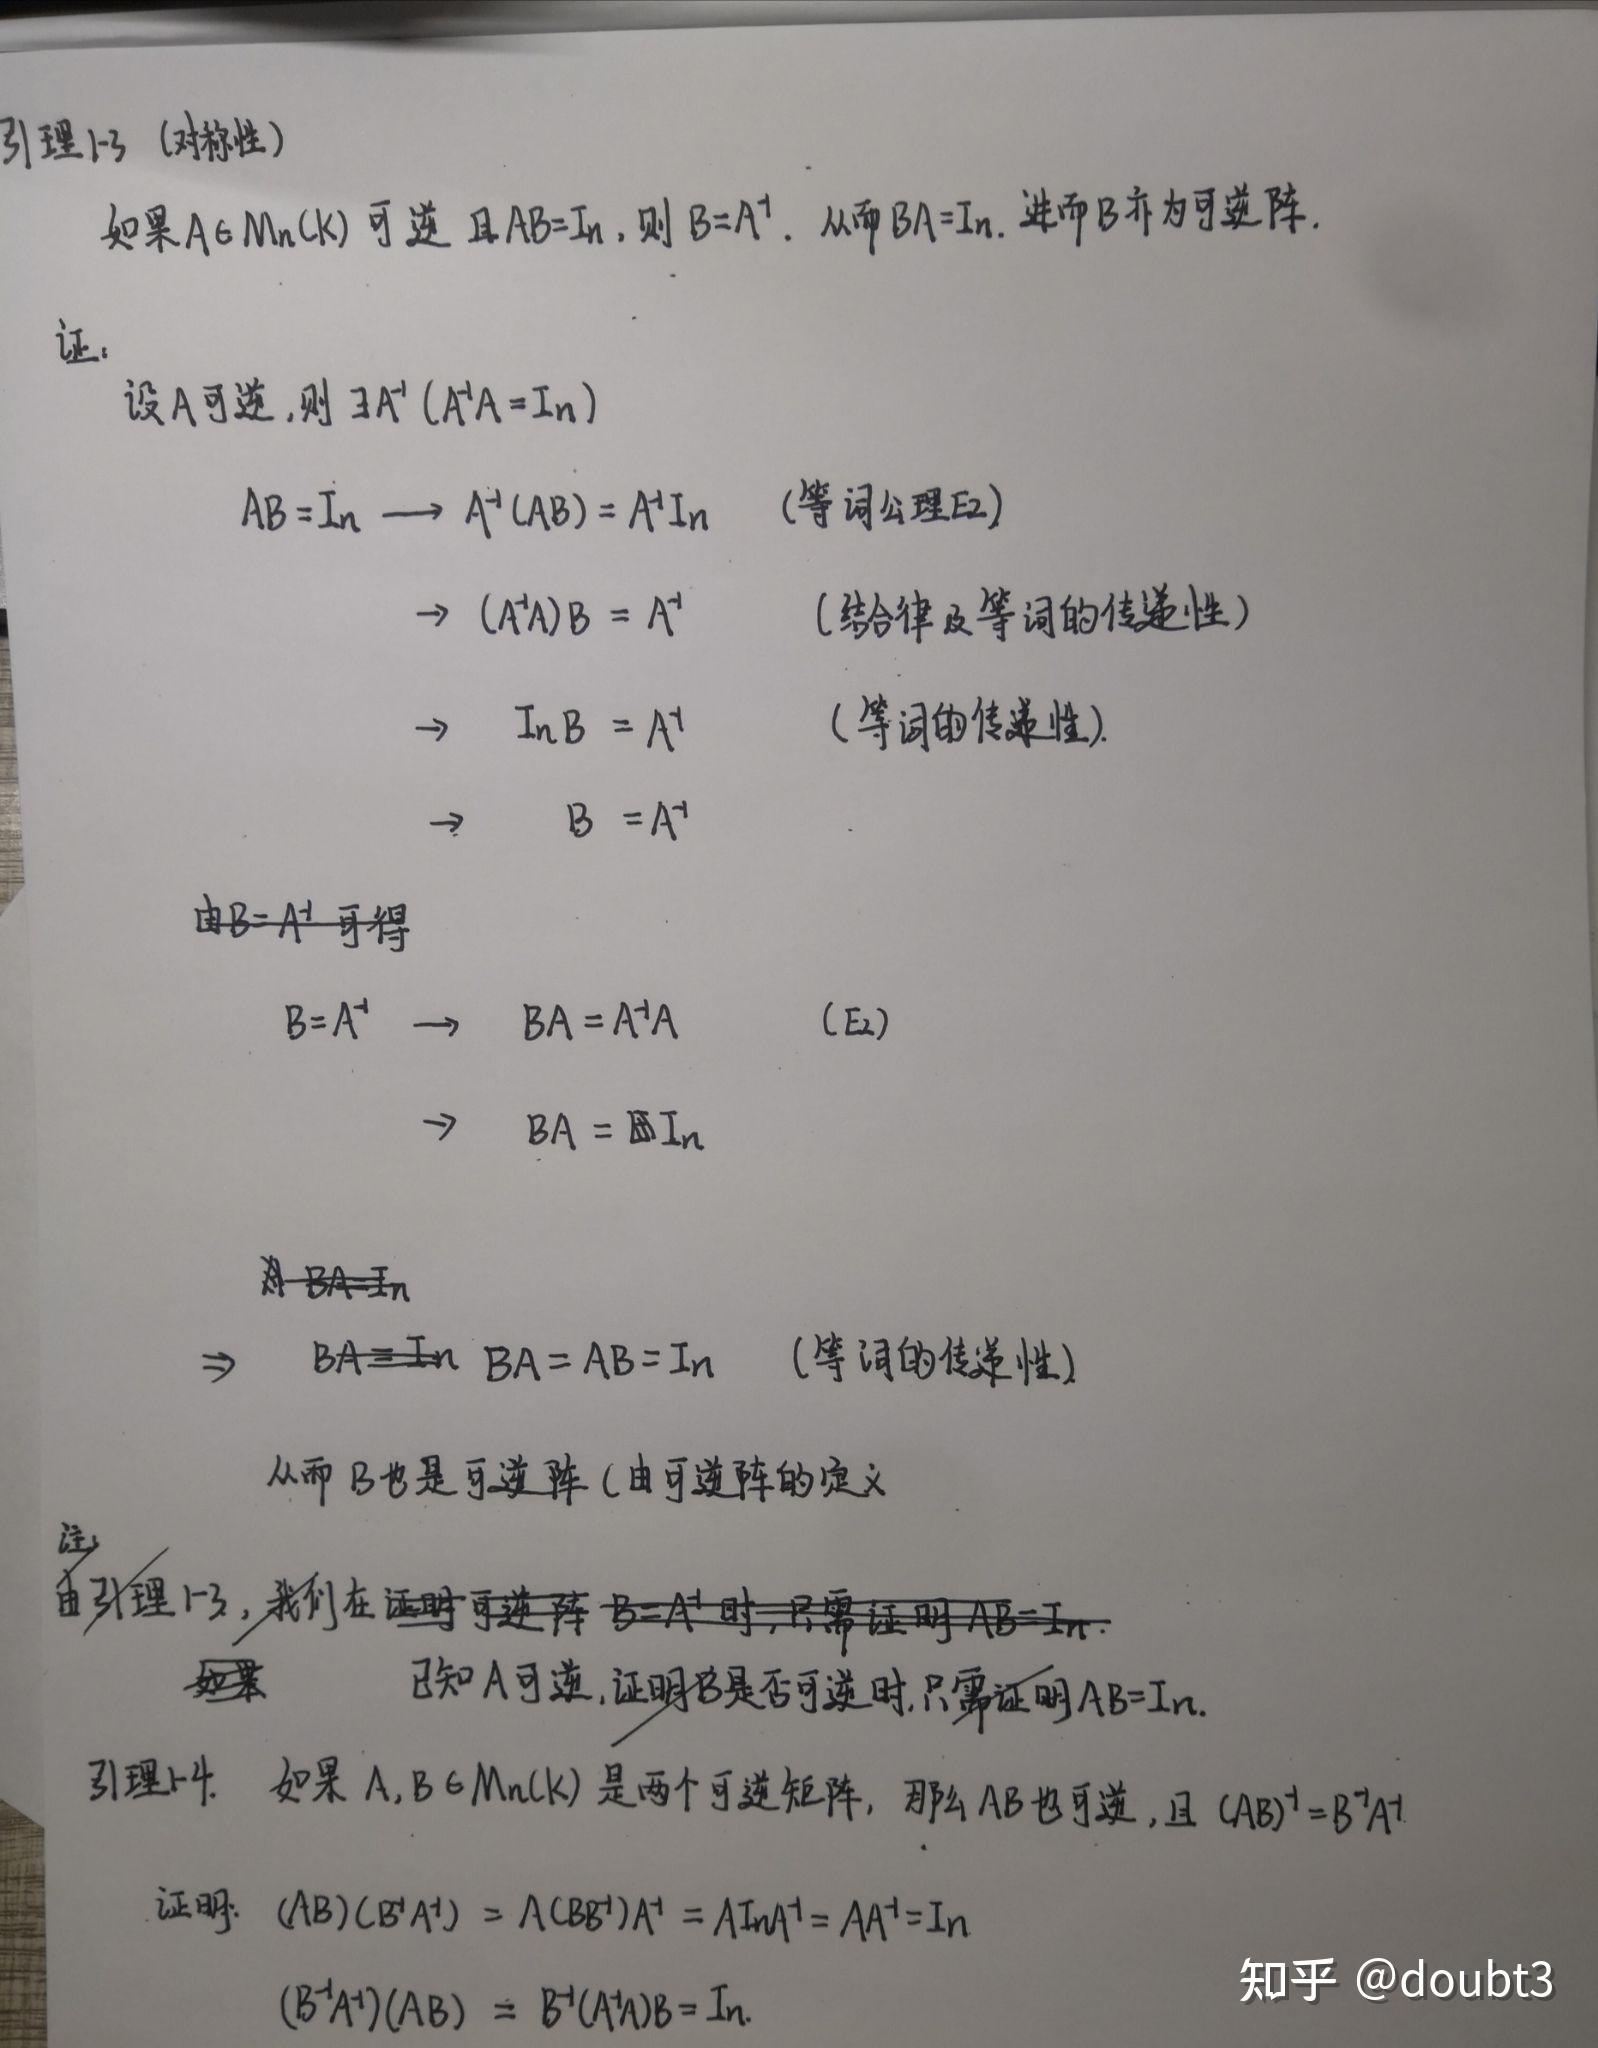 引理1-3 (对称性)
如果A∈Mn(K)可逆且AB=In,则B=A⁻¹. 从而BA=In. 进而B亦为可逆阵.
证:
设A可逆,则∃A⁻¹(A⁻¹A=In)
AB=In → A⁻¹(AB)=A⁻¹In (等词公理E2)
→ (A⁻¹A)B = A⁻¹ (结合律及等词的传递性)
→ InB = A⁻¹ (等词的传递性).
→ B = A⁻¹
由B=A⁻¹可得
B=A⁻¹ → BA=A⁻¹A (E2)
→ BA = In
BA=In
⇒ BA=In BA=AB=In (等词的传递性)
从而B也是可逆阵(由可逆阵的定义
注:
由引理1-3,我们在证明可逆阵 B=A⁻¹时,只需证明AB=In.
如果 已知A可逆,证明B是否可逆时,只需证明AB=In.
引理1-4. 如果A,B∈Mn(K)是两个可逆矩阵,那么AB也可逆,且(AB)⁻¹=B⁻¹A⁻¹
证明: (AB)(B⁻¹A⁻¹) = A(BB⁻¹)A⁻¹ = AInA⁻¹ = AA⁻¹=In
(B⁻¹A⁻¹)(AB) = B⁻¹(A⁻¹A)B=In.
知乎 @doubt3